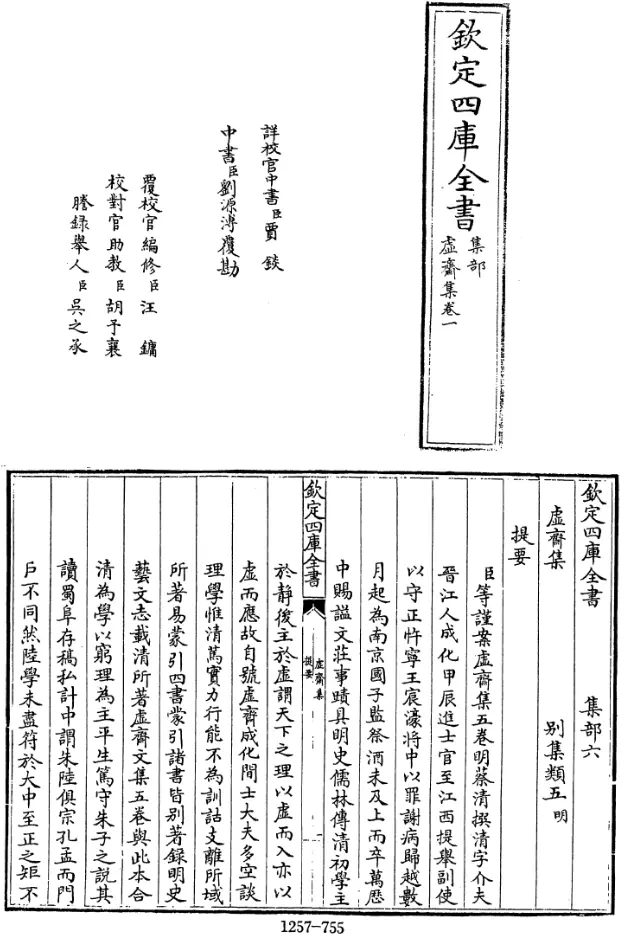 欽定四庫全書
集部
虛齋集卷一
詳校官中書臣賈錟
中書臣劉源溥覆勘
覆校官編修臣汪鏞
校對官助教臣胡予襄
謄錄舉人臣吳之承
欽定四庫全書 集部六
虛齋集 別集類五 明
提要
臣等謹案虛齋集五卷明蔡清撰清字介夫
晉江人成化甲辰進士官至江西提舉副使
以守正忤寧王宸濠將中以罪謝病歸越數
月起為南京國子監祭酒未及上而卒萬歷
中賜謚文莊事蹟具明史儒林傳清初學主
欽定四庫全書
虛齋集
提要
一
於靜後主於虛謂天下之理以虛而入亦以
虛而應故自號虛齋成化間士大夫多空談
理學惟清篤實力行能不為訓詁支離所域
所著易蒙引四書蒙引諸書皆别著録明史
藝文志載清所著虛齋文集五卷與此本合
清為學以窮理為主平生篤守朱子之說其
讀蜀阜存稿私計中謂朱陸俱宗孔孟而門
戶不同然陸學未盡符於大中至正之矩不
1257-755